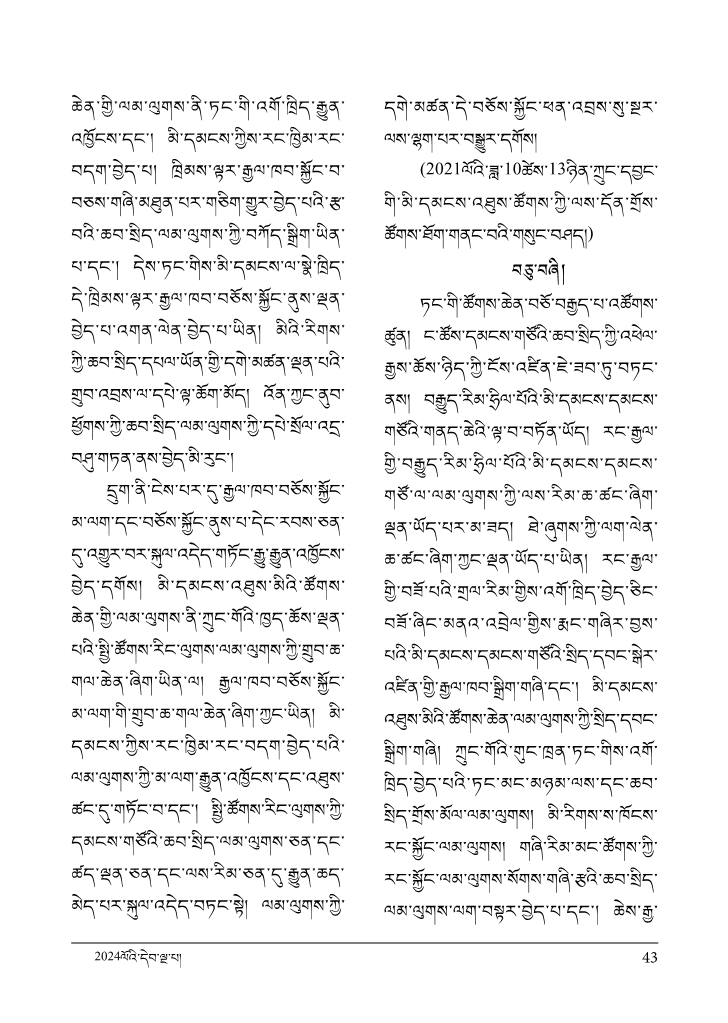 ཆེན་གྱི་ལམ་ལུགས་ནི་ཏང་གི་འགོ་ཁྲིད་རྒྱུན་
འཁྱོངས་དང་། མི་དམངས་ཀྱིས་རང་ཁྱིམ་རང་
བདག་བྱེད་པ། ཁྲིམས་ལྟར་རྒྱལ་ཁབ་སྐྱོང་བ་
བཅས་གཞི་མཐུན་པར་གཅིག་གྱུར་བྱེད་པའི་རྩ་
བའི་ཆབ་སྲིད་ལམ་ལུགས་ཀྱི་བཀོད་སྒྲིག་ཡིན་
པ་དང་། དེས་ཏང་གིས་མི་དམངས་ལ་སྣེ་ཁྲིད་
དེ་ཁྲིམས་ལྟར་རྒྱལ་ཁབ་བཅོས་སྐྱོང་ནུས་ལྡན་
བྱེད་པ་འགན་ལེན་བྱེད་པ་ཡིན། མིའི་རིགས་
ཀྱི་ཆབ་སྲིད་དཔལ་ཡོན་གྱི་དགེ་མཚན་ལྡན་པའི་
གྲུབ་འབྲས་ལ་དཔེ་ལྟ་ཆོག་མོད། འོན་ཀྱང་ནུབ་
ཕྱོགས་ཀྱི་ཆབ་སྲིད་ལམ་ལུགས་ཀྱི་དཔེ་སྲོལ་འདྲ་
བཤུ་གཏན་ནས་བྱེད་མི་རུང་།
དྲུག་ནི་ངེས་པར་དུ་རྒྱལ་ཁབ་བཅོས་སྐྱོང་
མ་ལག་དང་བཅོས་སྐྱོང་ནུས་པ་དེང་རབས་ཅན་
དུ་འགྱུར་བར་སྐུལ་འདེད་གཏོང་རྒྱུ་རྒྱུན་འཁྱོངས་
བྱེད་དགོས། མི་དམངས་འཐུས་མིའི་ཚོགས་
ཆེན་གྱི་ལམ་ལུགས་ནི་ཀྲུང་གོའི་ཁྱད་ཆོས་ལྡན་
པའི་སྤྱི་ཚོགས་རིང་ལུགས་ལམ་ལུགས་ཀྱི་གྲུབ་ཆ་
གལ་ཆེན་ཞིག་ཡིན་ལ། རྒྱལ་ཁབ་བཅོས་སྐྱོང་
མ་ལག་གི་གྲུབ་ཆ་གལ་ཆེན་ཞིག་ཀྱང་ཡིན། མི་
དམངས་ཀྱིས་རང་ཁྱིམ་རང་བདག་བྱེད་པའི་
ལམ་ལུགས་ཀྱི་མ་ལག་རྒྱུན་འཁྱོངས་དང་འཐུས་
ཚང་དུ་གཏོང་བ་དང་། སྤྱི་ཚོགས་རིང་ལུགས་ཀྱི་
དམངས་གཙོའི་ཆབ་སྲིད་ལམ་ལུགས་ཅན་དང་
ཚད་ལྡན་ཅན་དང་ལས་རིམ་ཅན་དུ་རྒྱུན་ཆད་
མེད་པར་སྐུལ་འདེད་བཏང་སྟེ། ལམ་ལུགས་ཀྱི་
དགེ་མཚན་དེ་བཅོས་སྐྱོང་ཕན་འབྲས་སུ་སྔར་
ལས་ལྷག་པར་བསྒྱུར་དགོས།
(2021ལོའི་ཟླ་10ཚེས་13ཉིན་ཀྲུང་དབྱང་
གི་མི་དམངས་འཐུས་ཚོགས་ཀྱི་ལས་དོན་གྲོས་
ཚོགས་ཐོག་གནང་བའི་གསུང་བཤད།)
བཅུ་བཞི།
ཏང་གི་ཚོགས་ཆེན་བཅོ་བརྒྱད་པ་འཚོགས་
ཚུན། ང་ཚོས་དམངས་གཙོའི་ཆབ་སྲིད་ཀྱི་འཕེལ་
རྒྱས་ཆོས་ཉིད་ཀྱི་ངོས་འཛིན་ཇེ་ཟབ་ཏུ་བཏང་
ནས། བརྒྱུད་རིམ་ཧྲིལ་པོའི་མི་དམངས་དམངས་
གཙོའི་གནད་ཆེའི་ལྟ་བ་བཏོན་ཡོད། རང་རྒྱལ་
གྱི་བརྒྱུད་རིམ་ཧྲིལ་པོའི་མི་དམངས་དམངས་
གཙོ་ལ་ལམ་ལུགས་ཀྱི་ལས་རིམ་ཆ་ཚང་ཞིག་
ལྡན་ཡོད་པར་མ་ཟད། ཐེ་ཞུགས་ཀྱི་ལག་ལེན་
ཆ་ཚང་ཞིག་ཀྱང་ལྡན་ཡོད་པ་ཡིན། རང་རྒྱལ་
གྱི་བཟོ་པའི་གྲལ་རིམ་གྱིས་འགོ་ཁྲིད་བྱེད་ཅིང་
བཟོ་ཞིང་མནའ་འབྲེལ་གྱིས་རྨང་གཞིར་བྱས་
པའི་མི་དམངས་དམངས་གཙོའི་སྲིད་དབང་སྒེར་
འཛིན་གྱི་རྒྱལ་ཁབ་སྒྲིག་གཞི་དང་། མི་དམངས་
འཐུས་མིའི་ཚོགས་ཆེན་ལམ་ལུགས་ཀྱི་སྲིད་དབང་
སྒྲིག་གཞི། ཀྲུང་གོའི་གུང་ཁྲན་ཏང་གིས་འགོ་
ཁྲིད་བྱེད་པའི་ཏང་མང་མཉམ་ལས་དང་ཆབ་
སྲིད་གྲོས་མོལ་ལམ་ལུགས། མི་རིགས་ས་ཁོངས་
རང་སྐྱོང་ལམ་ལུགས། གཞི་རིམ་མང་ཚོགས་ཀྱི་
རང་སྐྱོང་ལམ་ལུགས་སོགས་གཞི་རྩའི་ཆབ་སྲིད་
ལམ་ལུགས་ལག་བསྟར་བྱེད་པ་དང་། ཆེས་རྒྱ་
2024ལོའི་དེབ་ལྔ་པ།
43